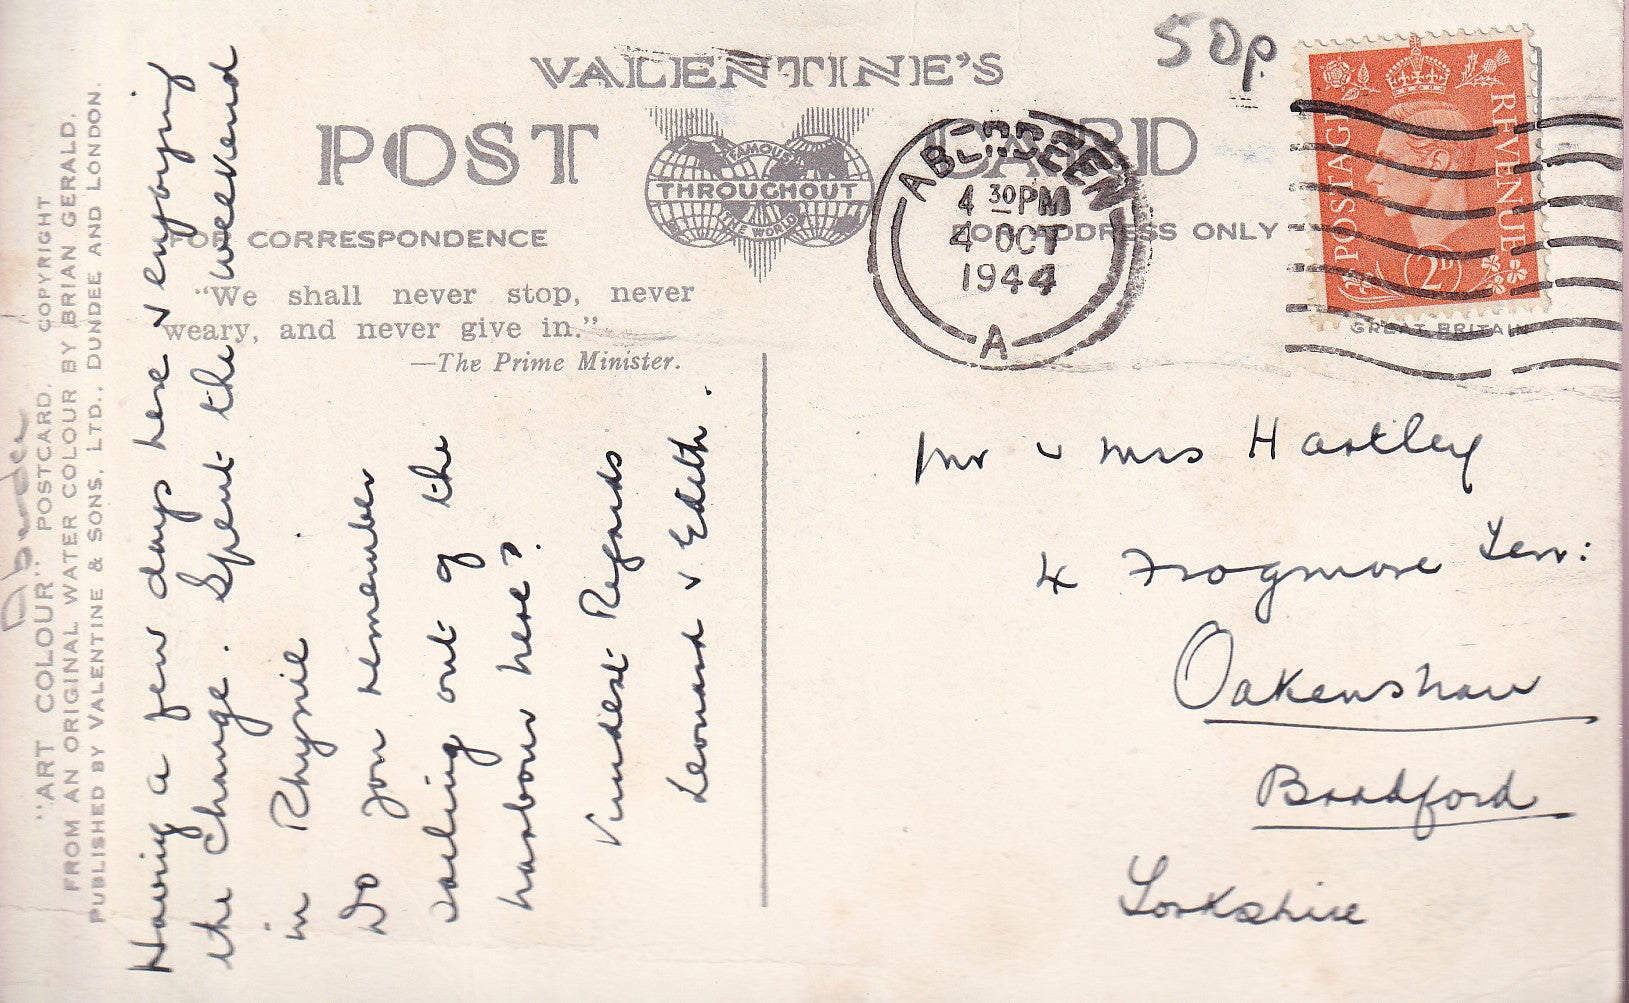 VALENTINE'S
POST CARD
FAMOUS
THROUGHOUT
THE WORLD
FOR CORRESPONDENCE
FOR ADDRESS ONLY
"We shall never stop, never
weary, and never give in."
—The Prime Minister.
50p.
ABERDEEN
4 30 PM
4 OCT
1944
A
POSTAGE
REVENUE
2D
GREAT BRITAIN
Aberdee
"ART COLOUR" POSTCARD. COPYRIGHT
FROM AN ORIGINAL WATER COLOUR BY BRIAN GERALD.
PUBLISHED BY VALENTINE & SONS, LTD., DUNDEE AND LONDON.
Having a few days here & enjoying
the change. Spent the weekend
in Rhynie.
Do you remember
sailing out of the
harbour here?
Kindest Regards
Leonard & Edith.
Mr & Mrs Hartley
4 Frogmore Terr:
Oakenshaw
Bradford
Yorkshire